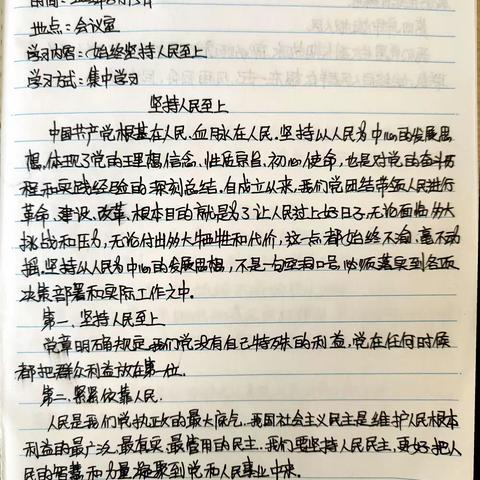 时间：
地点：会议室
学习内容：《始终坚持人民至上》
学习方式：集中学习
坚持人民至上
中国共产党根基在人民、血脉在人民。坚持以人民为中心的发展思
想，体现了党的理想信念、性质宗旨、初心使命，也是对党的奋斗历
程和实践经验的深刻总结。自成立以来，我们党团结带领人民进行
革命、建设、改革，根本目的就是为了让人民过上好日子，无论面临多大
挑战和压力，无论付出多大牺牲和代价，这一点都始终不渝、毫不动
摇。坚持以人民为中心的发展思想，不是一句空洞口号，必须落实到各项
决策部署和实际工作之中。
第一、坚持人民至上
党章明确规定，我们党没有自己特殊的利益，党在任何时候
都把群众利益放在第一位。
第二、紧紧依靠人民。
人民是我们党执政的最大底气。我国社会主义民主是维护人民根本
利益的最广泛、最真实、最管用的民主。我们要坚持人民民主，更好把人
民的智慧和力量凝聚到党和人民事业中来。